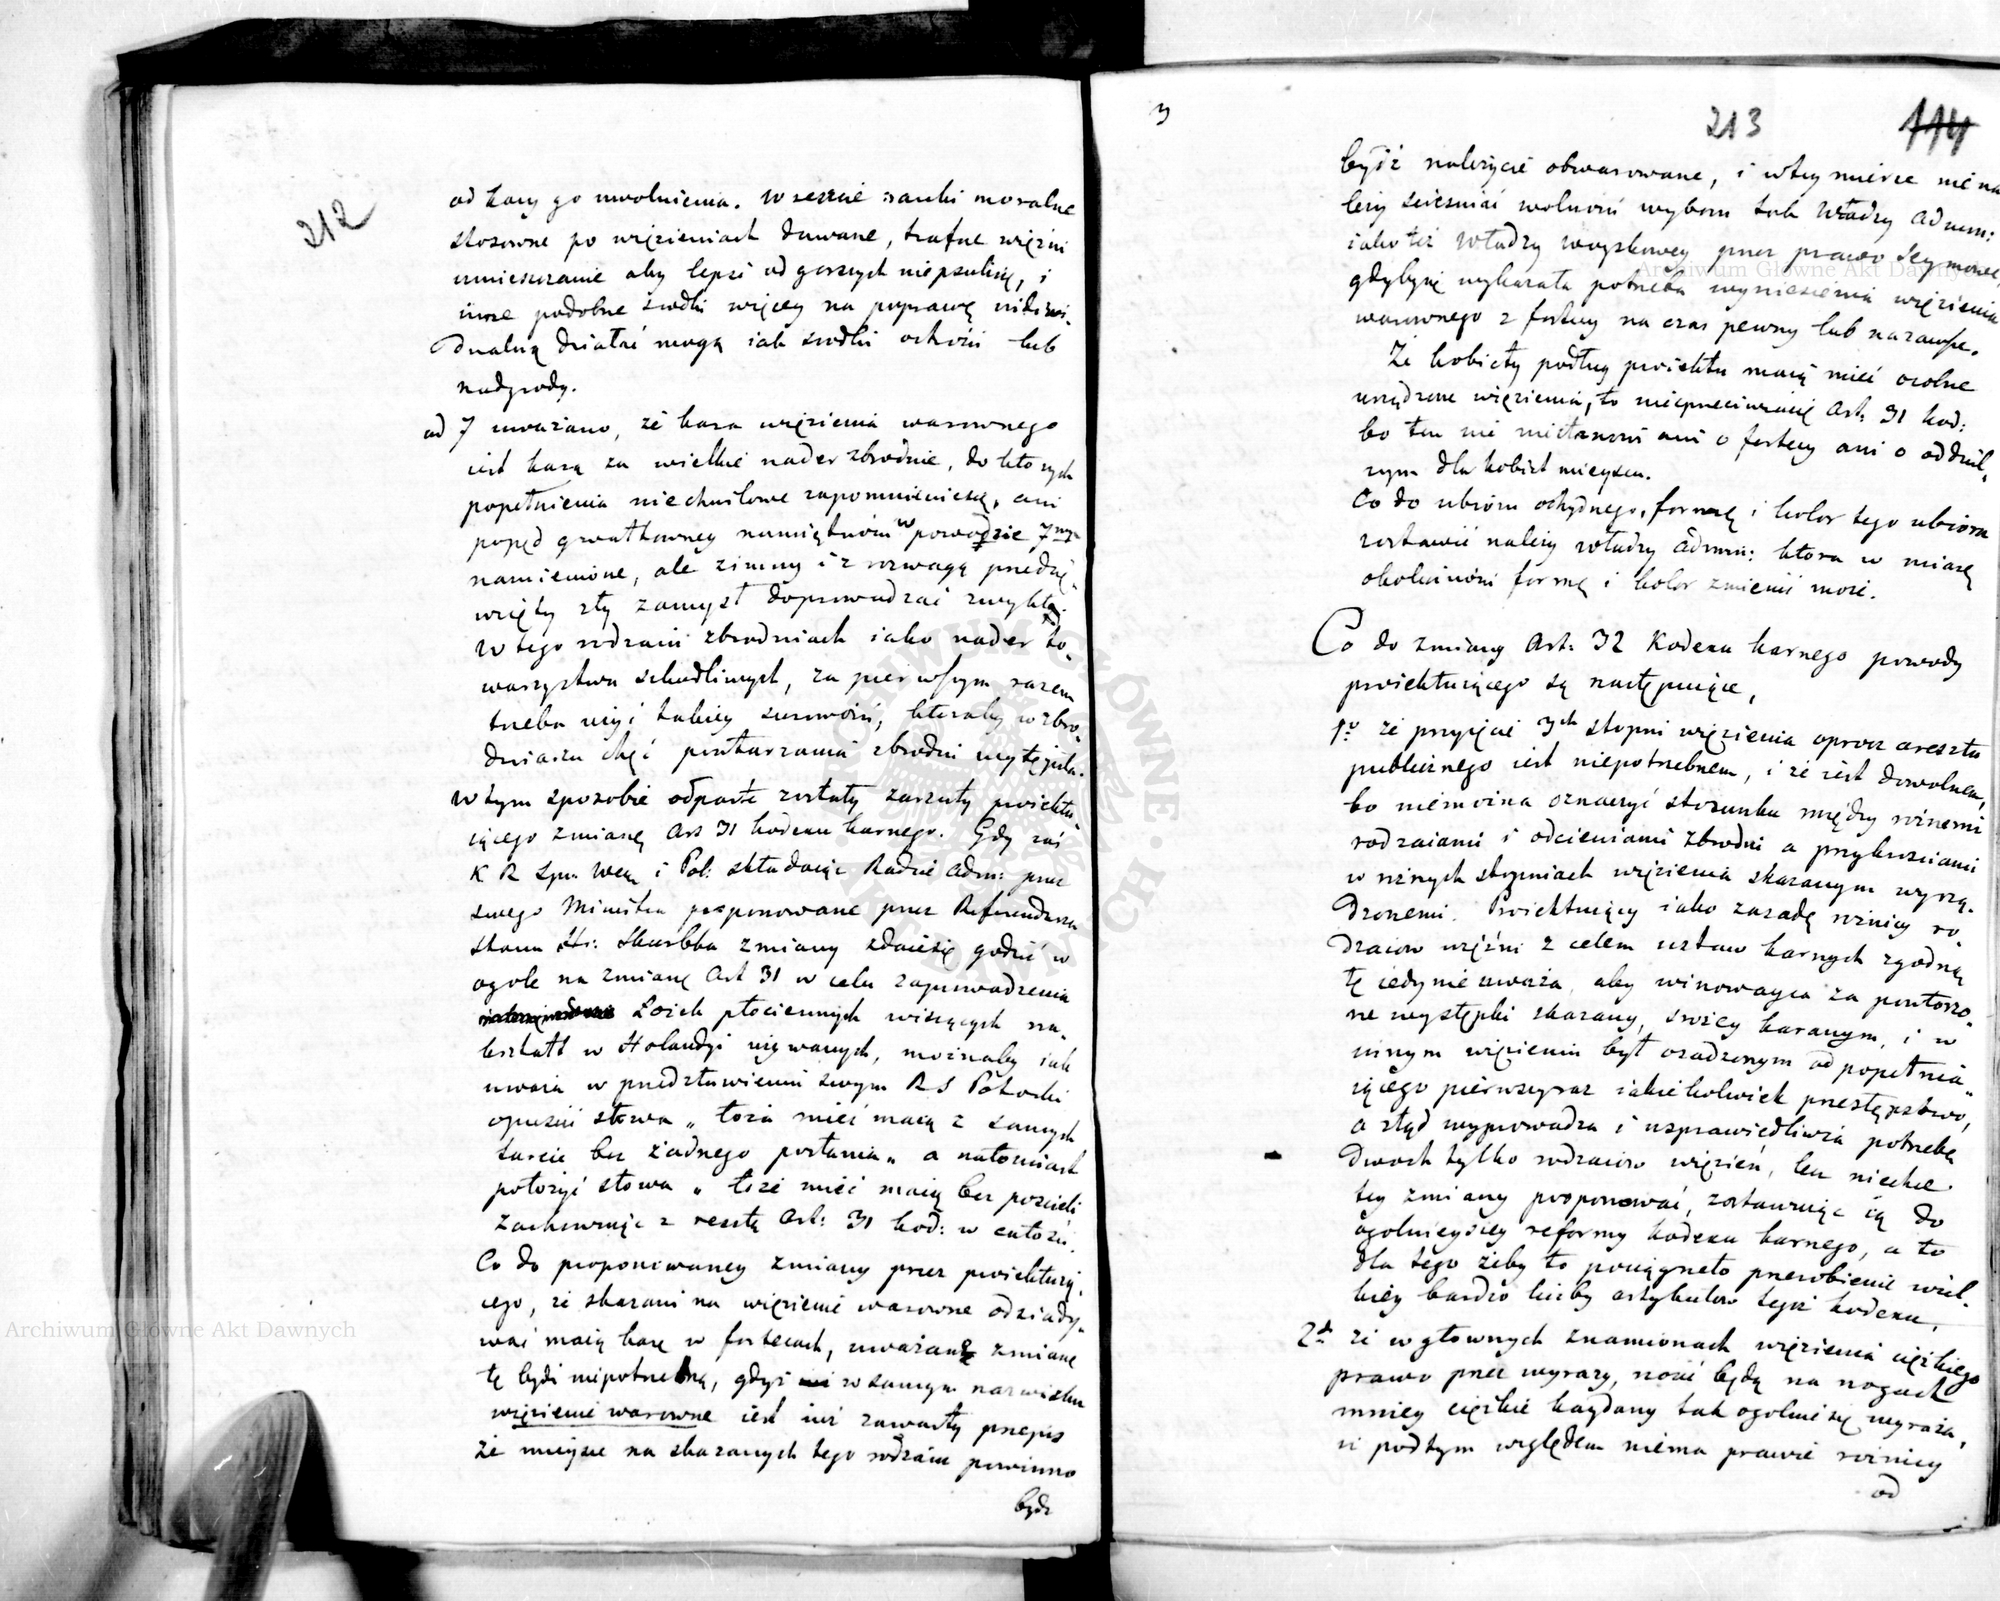 212
od kary go uwolnienia. W reszcie nauki moralne
stosowne po więzieniach dawane, trafne więźni
umieszczanie aby lepsi od gorszych niepsulisię, i
inne podobne środki więcey na poprawę indiwi-
dualną działać mogą iak środki ochońi lub
nadgrody.
ad 7 uważano, że kara więzienia warownego
iest karą za wielkie nader zbrodnie, do których
popełnienia niechwilowe zapomnieniesię, ani
popęd gwałtowney namiętności w powodzie 7mym
namienione, ale zimny i z rozwagą przedsię-
wzięty zły zamysł doprowadzać zwykł.
W tego rodzaiu zbrodniach iako nader to-
warzystwu szkodliwych, za pierwszym razem
trzeba użyć takiey surowości, któraby w zbro-
dniarzu chęć powtarzania zbrodni wytępiła.
W tym sposobie odparte zostały zarzuty proiektu-
iącego zmianę Art 31 kodexu karnego. Gdy zaś
K R Spr. Wew i Pol: składaiąc Radzie Adm: przez
swego Ministra proponowane przez Referendarza
stanu Hr: Skarbka zmiany zdaiesię godzić w
ogole na zmianę Art 31 w celu zaprowadzenia
łożek płóciennych wiszących na-
kształt w Holandyi używanych, możnaby iak
uważa w przedstawieniu swym RS Potocki
opuścić słowa „ łoża mieć maią z samych
tarcic bez żadnego posłania „ a natomiast
położyć słowa „ łoże mieć maią bez pościeli
zachowuiąc z resztą Art: 31 kod: w całości.
Co do proponowaney zmiany przez proiektuią-
cego, że skazani na więzienie warowne odsiady-
wać maią karę w fortecach, uważano zmianę
tę bydź niepotrzebną, gdyż w samym nazwisku
więzienie warowne iest iuż zawarty przepis
że mieysce na skazanych tego rodzaiu powinno
bydź
3
213
114
bydź należycie obwarowane, i wtey mierze niena
leży ścieśniać wolności wyboru tak Władzy Admin:
iako też Władzy woyskowey przez prawo Seymowe,
gdybysię wykazała potrzeba wyniesienia więzienia
warownego z fortecy na czas pewny lub nazawsze.
Że kobiety podług proiektu maią mieć osobne
urządzone więzienia, to nieprzeciwiasię Art. 31 kod:
bo ten nie ani o fortecy ani o oddziel-
nym dla kobiet mieyscu.
Co do ubioru ochydnego, formę i kolor tego ubioru
zostawić należy władzy Admin: która w miarę
okoliczności formę i kolor zmienić może.
Co do zmiany Art: 32 Kodexu karnego powody
proiektuiącego są następuiące,
1o że przyięcie 3ch stopni więzienia oprocz aresztu
publicznego iest niepotrzebnem, i że iest dowolnem,
bo niemożna oznaczyć stosunku między różnemi
rodzaiami i odcieniami zbrodni a przykrościami
w różnych stopniach więzienia skazanym wyrzą-
dzonemi. Proiektuiący iako zasadę różnicy ro-
dzaiow więźni z celem ustaw karnych zgodną
tę iedynie uważa, aby winowayca za powtórzo-
ne występki skazany, srożey karanym, i w
innym więzieniu był osadzonym od popełnia-
iącego pierwszyraz iakiekolwiek przestępstwo,
a ztąd wyprowadza i usprawiedliwia potrzebę
dwoch tylko rodzaiow więzień, lecz niechce
tey zmiany proponować, zostawuiąc ią do
ogolnieyszey reformy kodexu karnego, a to
dla tego żeby to pociągnęło przerobienie wiel-
kiey bardzo liczby artykułow tegoż kodexu,
2do że w głownych znamionach więzienia ciężkiego
prawo przez wyrazy, nosić będą na nogach
mniey ciężkie kaydany tak ogolnie się wyraża,
iż pod tym względem niema prawie różnicy
od
Archiwum Główne Akt Dawnych
Archiwum Główne Akt Dawnych